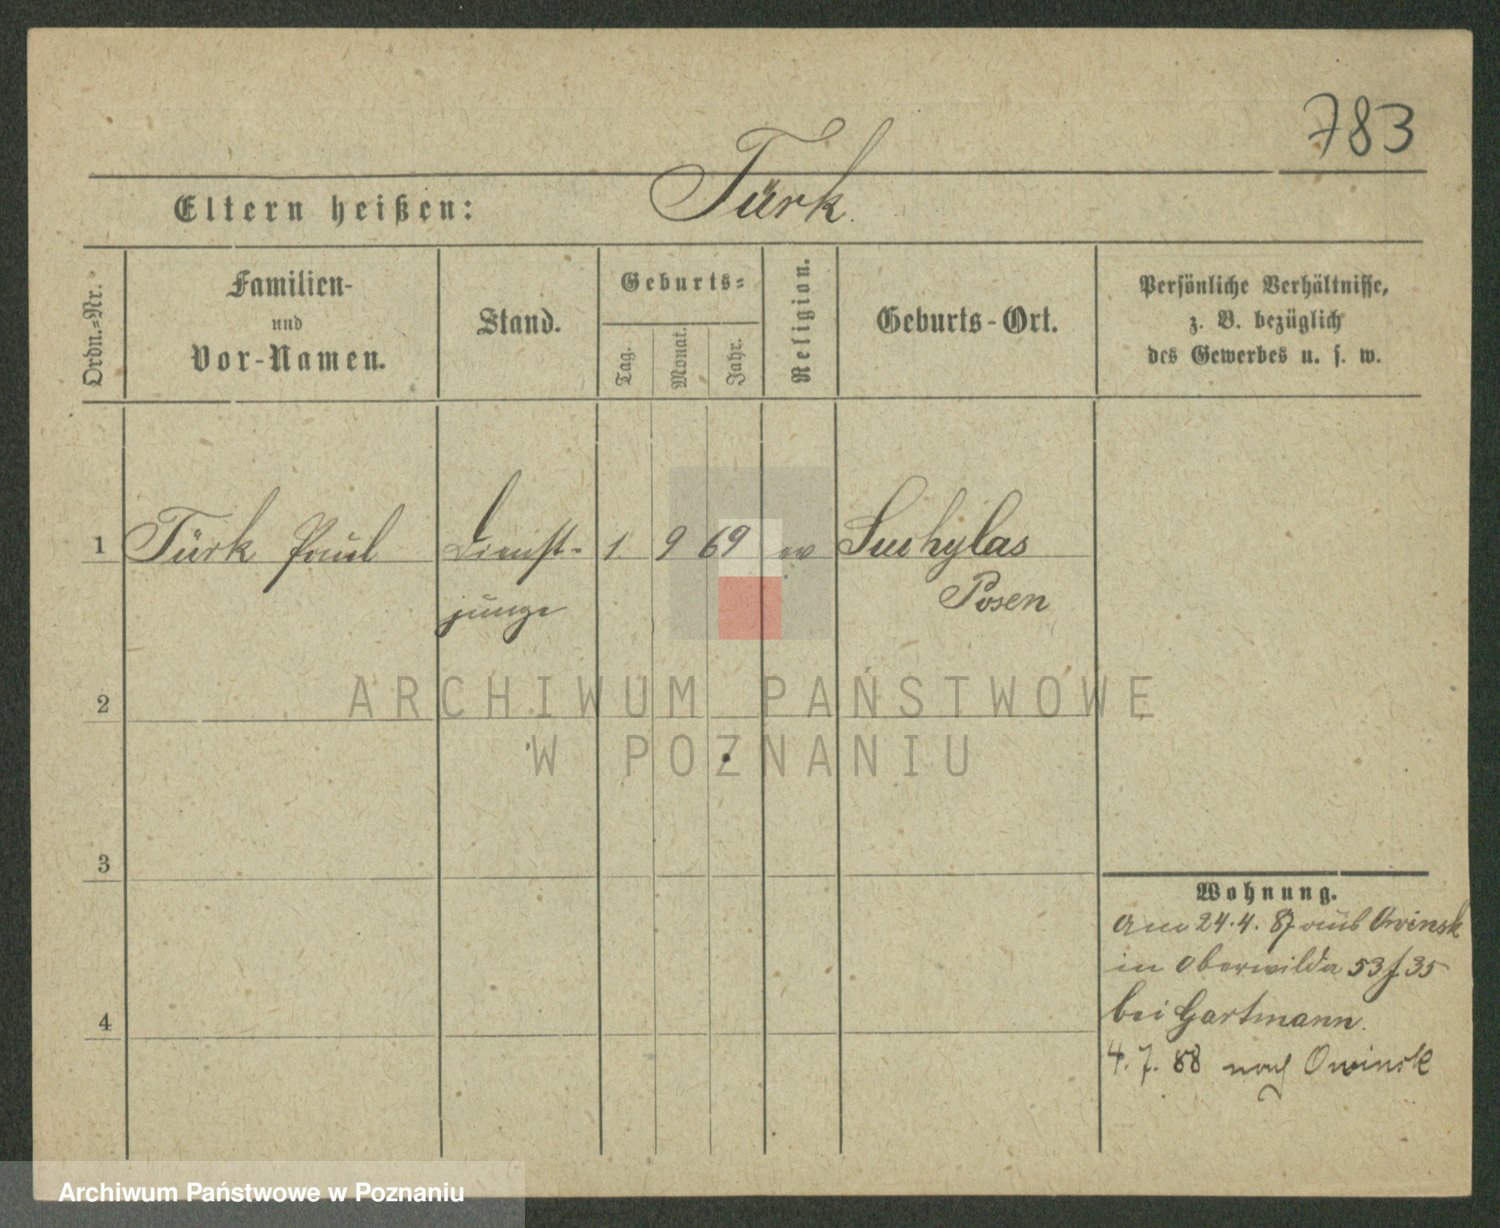 783
Türk.
Eltern heißen:
Ordn.-Nr.
Familien-
und
Vor-Namen.
Stand.
Geburts-
Tag.
Monat.
Jahr.
Religion.
Geburts-Ort.
Persönliche Verhältnisse,
z. B. bezüglich
des Gewerbes u. s. w.
1 Türk Paul Dienst- 1 9 69 ev Suchylas
junge Posen
2
3
4
Wohnung.
Am 24.4.87 aus Owinsk
in Oberwilda 53 f 35
bei Gartmann.
4.7.88 nach Owinsk
ARCHIWUM PAŃSTWOWE
W POZNANIU
Archiwum Państwowe w Poznaniu